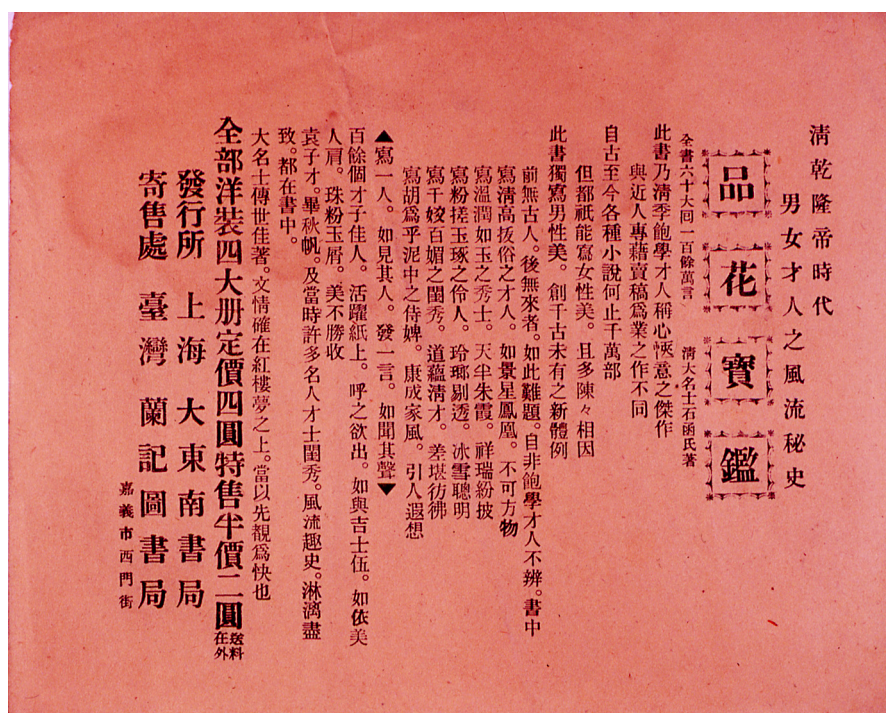 清乾隆帝時代
男女才人之風流秘史
品花寶鑑
全書六十大回一百餘萬言　清大名士石函氏著
此書乃淸季飽學才人稱心愜意之傑作
與近人專藉賣稿爲業之作不同
自古至今各種小說何止千萬部
但都祇能寫女性美。且多陳々相因
此書獨寫男性美。創千古未有之新體例
前無古人。後無來者。如此難題。自非飽學才人不辨。書中
寫淸高拔俗之才人。如景星鳳凰。不可方物
寫溫潤如玉之秀士。天半朱霞。祥瑞紛披
寫粉搓玉琢之伶人。玲瑯剔透。冰雪聰明
寫千嬌百媚之閨秀。道蘊淸才。差堪彷彿
寫胡爲乎泥中之侍婢。康成家風。引人遐想
▲寫一人。如見其人。發一言。如聞其聲▼
百餘個才子佳人。活躍紙上。呼之欲出。如與吉士伍。如依美
人肩。珠粉玉屑。美不勝收
袁子才。畢秋帆。及當時許多名人才士閨秀。風流趣史。淋漓盡
致。都在書中。
大名士傳世佳著。文情確在紅樓夢之上。當以先覩爲快也
全部洋裝四大册定價四圓特售半價二圓送料在外
發行所　上海大東南書局
寄售處　臺灣蘭記圖書局
嘉義市西門街